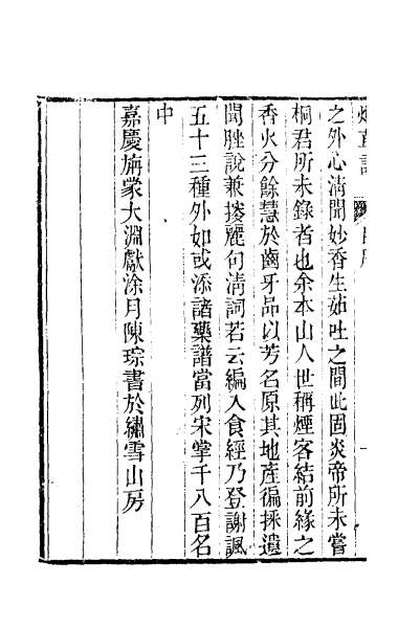 之外心清聞妙香生茹吐之間此固炎帝所未嘗
桐君所未錄者也余本山人世稱煙客結前緣之
香火分餘慧於齒牙品以芳名原其地產徧採遺
聞脞說兼麗句清詞若云編入食經乃登謝諷
五十三種外如或添諸藥譜當列宋掌千八百名
中
嘉慶旃蒙大淵獻涂月陳琮書於繡雪山房